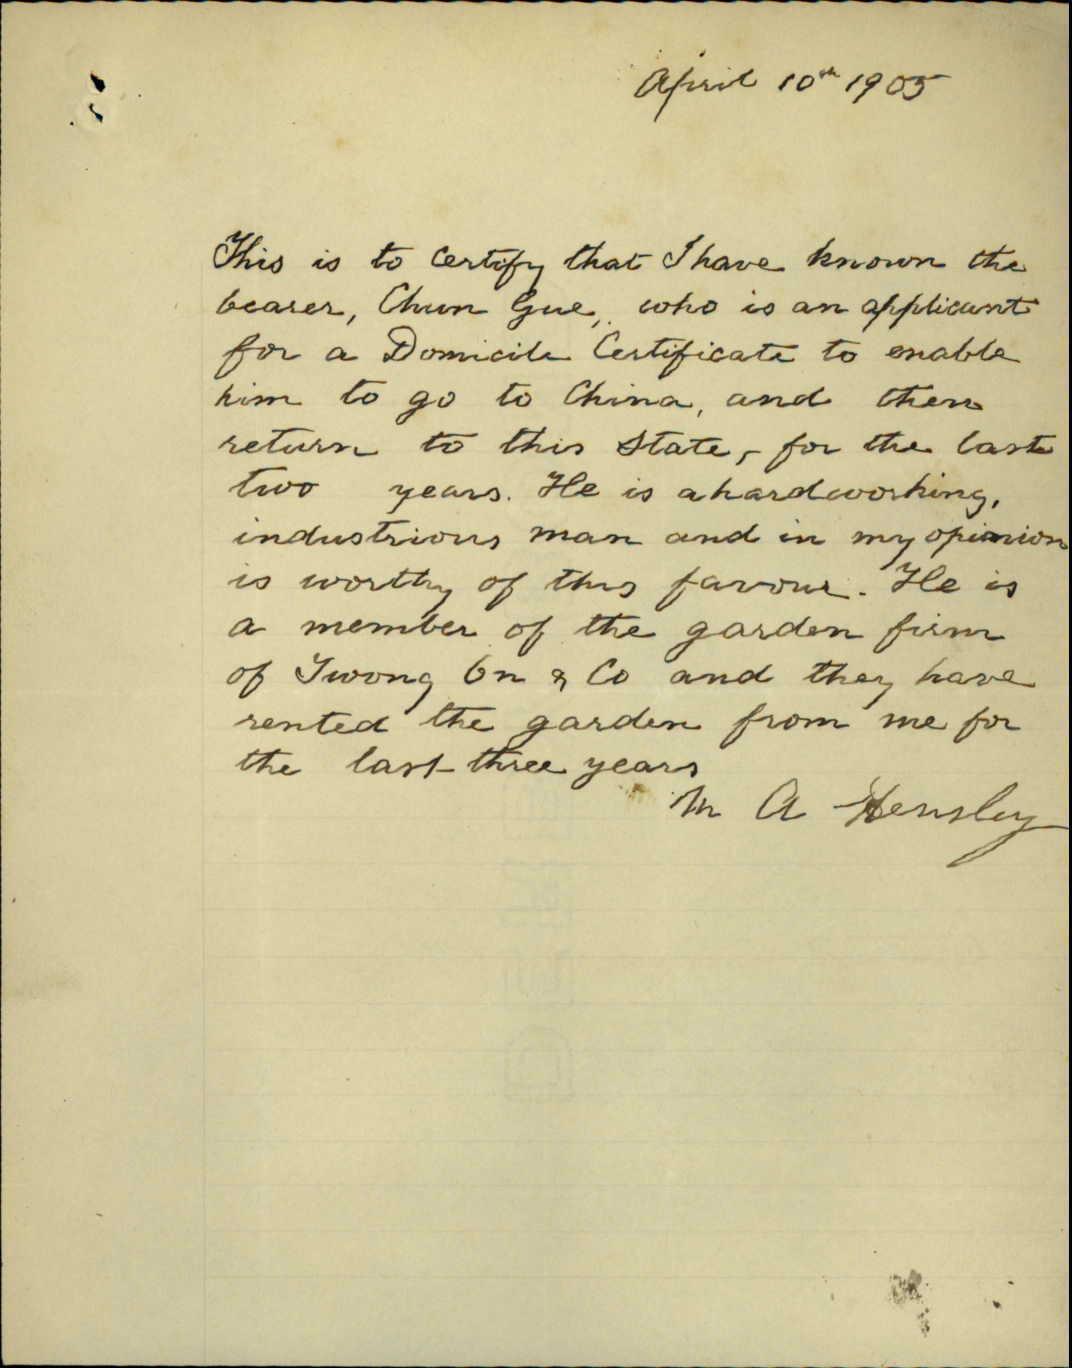 April 10th 1905
This is to certify that I have known the
bearer, Chun Gue, who is an applicant
for a Domicile Certificate to enable
him to go to China, and then
return to this State, for the last
two years. He is a hardworking,
industrious man and in my opinion
is worthy of this favour. He is
a member of the garden firm
of Twong On & Co and they have
rented the garden from me for
the last three years
M A Hensley